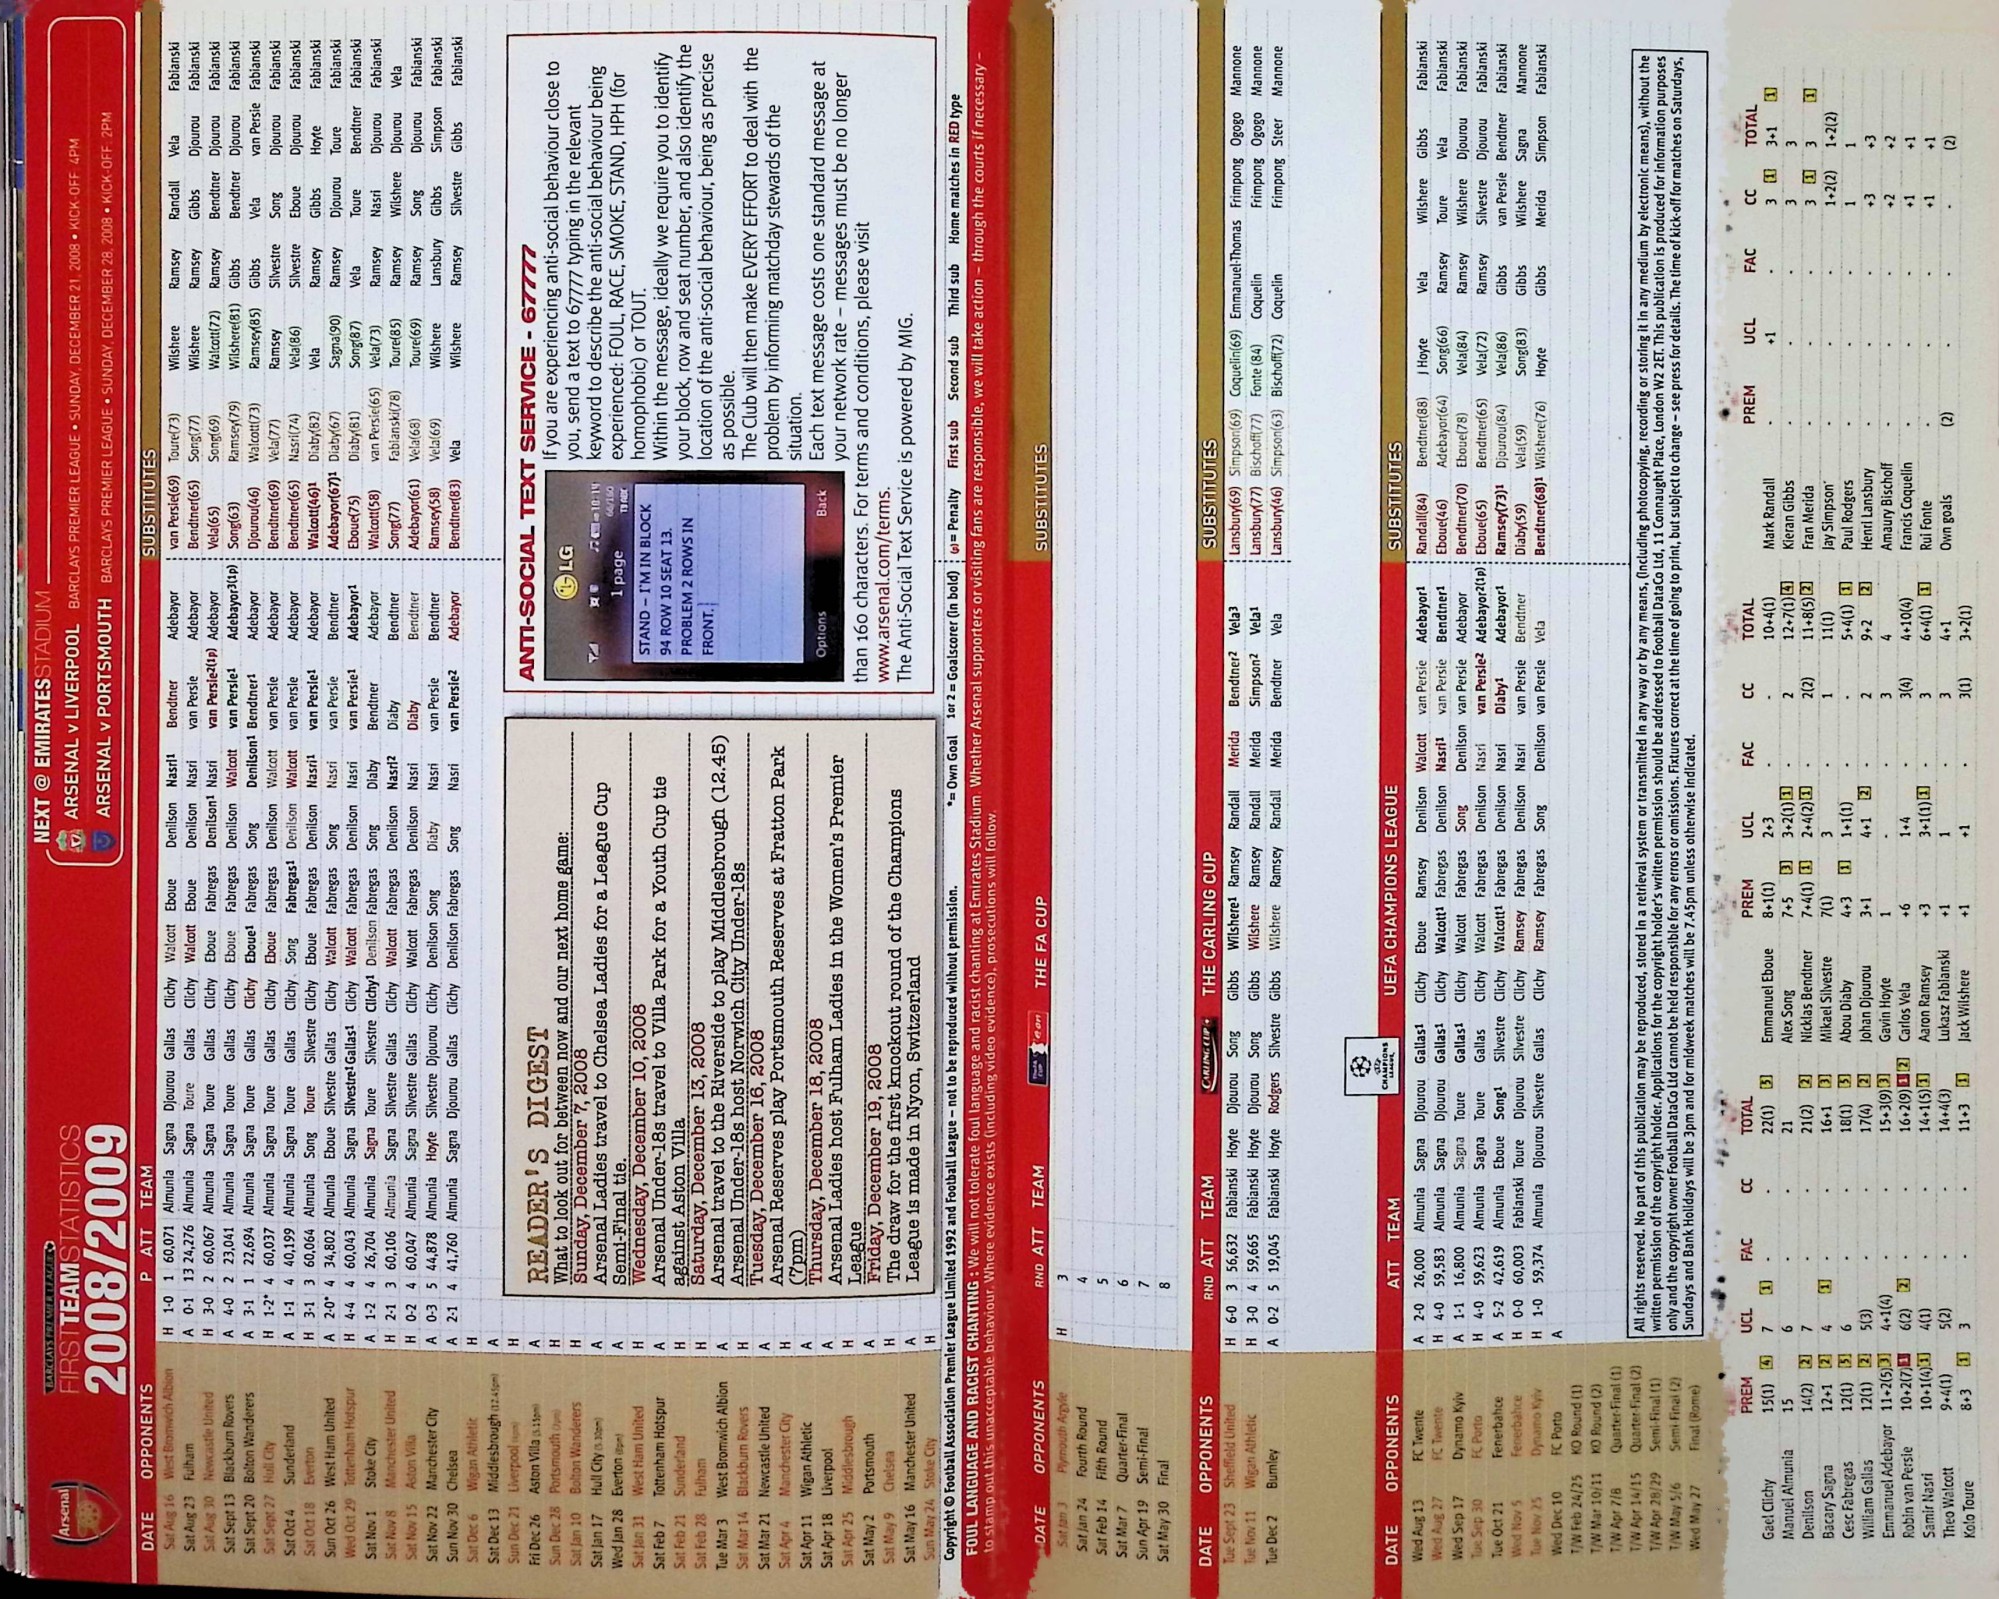 Arsenal
BARCLAYS PREMIER LEAGUE
FIRSTTEAMSTATISTICS
2008/2009
NEXT @ EMIRATESSTADIUM
ARSENAL v LIVERPOOL BARCLAYS PREMIER LEAGUE • SUNDAY, DECEMBER 21, 2008 • KICK-OFF: 4PM
ARSENAL v PORTSMOUTH BARCLAYS PREMIER LEAGUE • SUNDAY, DECEMBER 28, 2008 • KICK-OFF: 2PM
DATE OPPONENTS P ATT TEAM SUBSTITUTES
Sat Aug 16 West Bromwich Albion H 1-0 1 60,071 Almunia Sagna Djourou Gallas Clichy Walcott Eboue Denilson Nasri1 Bendtner Adebayor van Persie(69) Toure(73) Wilshere Ramsey Randall Vela Fabianski
Sat Aug 23 Fulham A 0-1 13 24,276 Almunia Sagna Toure Gallas Clichy Walcott Eboue Denilson Nasri van Persie Adebayor Bendtner(65) Song(77) Wilshere Ramsey Gibbs Djourou Fabianski
Sat Aug 30 Newcastle United H 3-0 2 60,067 Almunia Sagna Toure Gallas Clichy Eboue Fabregas Denilson1 Nasri van Persie2(1p) Adebayor Vela(65) Song(69) Walcott(72) Ramsey Bendtner Djourou Fabianski
Sat Sept 13 Blackburn Rovers A 4-0 2 23,041 Almunia Sagna Toure Gallas Clichy Eboue Fabregas Denilson Walcott van Persie1 Adebayor3(1p) Song(63) Ramsey(79) Wilshere(81) Gibbs Bendtner Djourou Fabianski
Sat Sept 20 Bolton Wanderers A 3-1 1 22,694 Almunia Sagna Toure Gallas Clichy Eboue1 Fabregas Song Denilson1 Bendtner1 Adebayor Djourou(46) Walcott(73) Ramsey(85) Gibbs Vela van Persie Fabianski
Sat Sept 27 Hull City H 1-2* 4 60,037 Almunia Sagna Toure Gallas Clichy Eboue Fabregas Denilson Walcott van Persie Adebayor Bendtner(69) Vela(77) Ramsey Silvestre Song Djourou Fabianski
Sat Oct 4 Sunderland A 1-1 4 40,199 Almunia Sagna Toure Gallas Clichy Song Fabregas1 Denilson Walcott van Persie Adebayor Bendtner(65) Nasri(74) Vela(86) Silvestre Eboue Djourou Fabianski
Sat Oct 18 Everton H 3-1 3 60,064 Almunia Song Toure Silvestre Clichy Eboue Fabregas Denilson Nasri1 van Persie1 Adebayor Walcott(46)1 Diaby(82) Vela Ramsey Gibbs Hoyte Fabianski
Sun Oct 26 West Ham United A 2-0* 4 34,802 Almunia Eboue Silvestre Gallas Clichy Walcott Fabregas Song Nasri van Persie Bendtner Adebayor(67)1 Diaby(67) Sagna(90) Ramsey Djourou Toure Fabianski
Wed Oct 29 Tottenham Hotspur H 4-4 4 60,043 Almunia Sagna Silvestre1 Gallas1 Clichy Walcott Fabregas Denilson Nasri van Persie1 Adebayor1 Eboue(75) Diaby(81) Song(87) Vela Toure Bendtner Fabianski
Sat Nov 1 Stoke City A 1-2 4 26,704 Almunia Sagna Toure Silvestre Clichy1 Denilson Fabregas Song Diaby Bendtner Adebayor Walcott(58) van Persie(65) Vela(73) Ramsey Nasri Djourou Fabianski
Sat Nov 8 Manchester United H 2-1 3 60,106 Almunia Sagna Silvestre Gallas Clichy Walcott Fabregas Denilson Nasri2 Diaby Bendtner Song(77) Fabianski(78) Toure(85) Ramsey Wilshere Djourou Vela
Sat Nov 15 Aston Villa H 0-2 4 60,047 Almunia Sagna Silvestre Gallas Clichy Walcott Fabregas Denilson Nasri Diaby Bendtner Adebayor(61) Vela(68) Toure(69) Ramsey Song Djourou Fabianski
Sat Nov 22 Manchester City A 0-3 5 44,878 Almunia Hoyte Silvestre Djourou Clichy Denilson Song Diaby Nasri van Persie Bendtner Ramsey(58) Vela(69) Wilshere Lansbury Gibbs Simpson Fabianski
Sun Nov 30 Chelsea A 2-1 4 41,760 Almunia Sagna Djourou Gallas Clichy Denilson Fabregas Song Nasri van Persie2 Adebayor Bendtner(83) Vela Wilshere Ramsey Silvestre Gibbs Fabianski
Sat Dec 6 Wigan Athletic H
Sat Dec 13 Middlesbrough (12.45pm) A
Sun Dec 21 Liverpool (4pm) H
Fri Dec 26 Aston Villa (5.15pm) A
Sun Dec 28 Portsmouth (2pm) H
Sat Jan 10 Bolton Wanderers H
Sat Jan 17 Hull City (5.30pm) A
Wed Jan 28 Everton (8pm) A
Sat Jan 31 West Ham United H
Sat Feb 7 Tottenham Hotspur A
Sat Feb 21 Sunderland H
Sat Feb 28 Fulham H
Tue Mar 3 West Bromwich Albion A
Sat Mar 14 Blackburn Rovers H
Sat Mar 21 Newcastle United A
Sat Apr 4 Manchester City H
Sat Apr 11 Wigan Athletic A
Sat Apr 18 Liverpool A
Sat Apr 25 Middlesbrough H
Sat May 2 Portsmouth A
Sat May 9 Chelsea H
Sat May 16 Manchester United A
Sun May 24 Stoke City H
READER'S DIGEST
What to look out for between now and our next home game:
Sunday, December 7, 2008
Arsenal Ladies travel to Chelsea Ladies for a League Cup
Semi-Final tie.
Wednesday, December 10, 2008
Arsenal Under-18s travel to Villa Park for a Youth Cup tie
against Aston Villa
Saturday, December 13, 2008
Arsenal travel to the Riverside to play Middlesbrough (12.45)
Arsenal Under-18s host Norwich City Under-18s
Tuesday, December 16, 2008
Arsenal Reserves play Portsmouth Reserves at Fratton Park
(7pm)
Thursday, December 18, 2008
Arsenal Ladies host Fulham Ladies in the Women's Premier
League
Friday, December 19, 2008
The draw for the first knockout round of the Champions
League is made in Nyon, Switzerland
ANTI-SOCIAL TEXT SERVICE - 67777
LG
1 page
STAND – I'M IN BLOCK
94 ROW 10 SEAT 13.
PROBLEM 2 ROWS IN
FRONT.
Options Back
If you are experiencing anti-social behaviour close to
you, send a text to 67777 typing in the relevant
keyword to describe the anti-social behaviour being
experienced: FOUL, RACE, SMOKE, STAND, HPH (for
homophobic) or TOUT.
Within the message, ideally we require you to identify
your block, row and seat number, and also identify the
location of the anti-social behaviour, being as precise
as possible.
The Club will then make EVERY EFFORT to deal with the
problem by informing matchday stewards of the
situation.
Each text message costs one standard message at
your network rate – messages must be no longer
than 160 characters. For terms and conditions, please visit
www.arsenal.com/terms.
The Anti-Social Text Service is powered by MIG.
Copyright © Football Association Premier League Limited 1992 and Football League – not to be reproduced without permission. *= Own Goal 1or 2 = Goalscorer (in bold) (p)= Penalty First sub Second sub Third sub Home matches in RED type
FOUL LANGUAGE AND RACIST CHANTING: We will not tolerate foul language and racist chanting at Emirates Stadium. Whether Arsenal supporters or visiting fans are responsible, we will take action – through the courts if necessary –
to stamp out this unacceptable behaviour. Where evidence exists (including video evidence), prosecutions will follow.
THE FA CUP
DATE OPPONENTS RND ATT TEAM SUBSTITUTES
Sat Jan 3 Plymouth Argyle H 3
Sat Jan 24 Fourth Round 4
Sat Feb 14 Fifth Round 5
Sat Mar 7 Quarter-Final 6
Sun Apr 19 Semi-Final 7
Sat May 30 Final 8
CARLING CUP THE CARLING CUP
DATE OPPONENTS RND ATT TEAM SUBSTITUTES
Tue Sept 23 Sheffield United H 6-0 3 56,632 Fabianski Hoyte Djourou Song Gibbs Wilshere1 Ramsey Randall Merida Bendtner2 Vela3 Lansbury(69) Simpson(69) Coquelin(69) Emmanuel-Thomas Frimpong Ogogo Mannone
Tue Nov 11 Wigan Athletic H 3-0 4 59,665 Fabianski Hoyte Djourou Song Gibbs Wilshere Ramsey Randall Merida Simpson2 Vela1 Lansbury(77) Bischoff(77) Fonte (84) Coquelin Frimpong Ogogo Mannone
Tue Dec 2 Burnley A 0-2 5 19,045 Fabianski Hoyte Rodgers Silvestre Gibbs Wilshere Ramsey Randall Merida Bendtner Vela Lansbury(46) Simpson(63) Bischoff(72) Coquelin Frimpong Steer Mannone
CHAMPIONS LEAGUE UEFA CHAMPIONS LEAGUE
DATE OPPONENTS ATT TEAM SUBSTITUTES
Wed Aug 13 FC Twente A 2-0 26,000 Almunia Sagna Djourou Gallas1 Clichy Eboue Ramsey Denilson Walcott van Persie Adebayor1 Randall(84) Bendtner(88) J Hoyte Vela Wilshere Gibbs Fabianski
Wed Aug 27 FC Twente H 4-0 59,583 Almunia Sagna Djourou Gallas1 Clichy Walcott1 Fabregas Denilson Nasri1 van Persie Bendtner1 Eboue(46) Adebayor(64) Song(66) Ramsey Toure Vela Fabianski
Wed Sep 17 Dynamo Kyiv A 1-1 16,800 Almunia Sagna Toure Gallas1 Clichy Walcott Fabregas Song Denilson van Persie Adebayor Bendtner(70) Eboue(78) Vela(84) Ramsey Wilshere Djourou Fabianski
Tue Sep 30 FC Porto H 4-0 59,623 Almunia Sagna Toure Gallas Clichy Walcott Fabregas Denilson Nasri van Persie2 Adebayor2(1p) Eboue(65) Bendtner(65) Vela(72) Ramsey Silvestre Djourou Fabianski
Tue Oct 21 Fenerbahce A 5-2 42,619 Almunia Eboue Song1 Silvestre Clichy Walcott1 Fabregas Denilson Nasri Diaby1 Adebayor1 Ramsey(73)1 Djourou(84) Vela(86) Gibbs van Persie Bendtner Fabianski
Wed Nov 5 Fenerbahce H 0-0 60,003 Fabianski Toure Djourou Silvestre Clichy Ramsey Fabregas Denilson Nasri van Persie Bendtner Diaby(59) Vela(59) Song(83) Gibbs Wilshere Sagna Mannone
Tue Nov 25 Dynamo Kyiv H 1-0 59,374 Almunia Djourou Silvestre Gallas Clichy Ramsey Fabregas Song Denilson van Persie Vela Bendtner(68)1 Wilshere(76) Hoyte Gibbs Merida Simpson Fabianski
Wed Dec 10 FC Porto A
T/W Feb 24/25 KO Round (1)
T/W Mar 10/11 KO Round (2)
T/W Apr 7/8 Quarter-Final (1)
T/W Apr 14/15 Quarter-Final (2)
T/W Apr 28/29 Semi-Final (1)
T/W May 5/6 Semi-Final (2)
Wed May 27 Final (Rome)
All rights reserved. No part of this publication may be reproduced, stored in a retrieval system or transmitted in any way or by any means, (including photocopying, recording or storing it in any medium by electronic means), without the
written permission of the copyright holder. Applications for the copyright holder's written permission should be addressed to Football DataCo Ltd, 11 Connaught Place, London W2 2ET. This publication is produced for information purposes
only and the copyright owner Football DataCo Ltd cannot be held responsible for any errors or omissions. Fixtures correct at the time of going to print, but subject to change – see press for details. The time of kick-off for matches on Saturdays,
Sundays and Bank Holidays will be 3pm and for midweek matches will be 7.45pm unless otherwise indicated.
PREM UCL FAC CC TOTAL PREM UCL FAC CC TOTAL PREM UCL FAC CC TOTAL
Gael Clichy 15(1) 4 7 1 . . 22(1) 5 Emmanuel Eboue 8+1(1) 2+3 . . 10+4(1) Mark Randall . +1 . 3 1 3+1 1
Manuel Almunia 15 6 . . 21 Alex Song 7+5 3 3+2(1) 1 . 2 12+7(1) 4 Kieran Gibbs . . . 3 3
Denilson 14(2) 2 7 . . 21(2) 2 Nicklas Bendtner 7+4(1) 1 2+4(2) 1 . 2(2) 11+8(5) 2 Fran Merida . . . 3 1 3 1
Bacary Sagna 12+1 2 4 1 . . 16+1 3 Mikael Silvestre 7(1) 3 . 1 11(1) Jay Simpson . . . 1+2(2) 1+2(2)
Cesc Fabregas 12(1) 5 6 . . 18(1) 5 Abou Diaby 4+3 1 1+1(1) . . 5+4(1) 1 Paul Rodgers . . . 1 1
William Gallas 12(1) 2 5(3) . . 17(4) 2 Johan Djourou 3+1 4+1 2 . 2 9+2 2 Henri Lansbury . . . +3 +3
Emmanuel Adebayor 11+2(5) 3 4+1(4) . . 15+3(9) 3 Gavin Hoyte 1 . . 3 4 Amaury Bischoff . . . +2 +2
Robin van Persie 10+2(7) 1 6(2) 2 . . 16+2(9) 1 2 Carlos Vela +6 1+4 . 3(4) 4+10(4) Francis Coquelin . . . +1 +1
Samir Nasri 10+1(4) 1 4(1) . . 14+1(5) 1 Aaron Ramsey +3 3+1(1) 1 . 3 6+4(1) 1 Rui Fonte . . . +1 +1
Theo Walcott 9+4(1) 5(2) . . 14+4(3) Lukasz Fabianski +1 1 . 3 4+1 Own goals (2) . . . (2)
Kolo Toure 8+3 1 3 . . 11+3 1 Jack Wilshere +1 +1 . 3(1) 3+2(1)